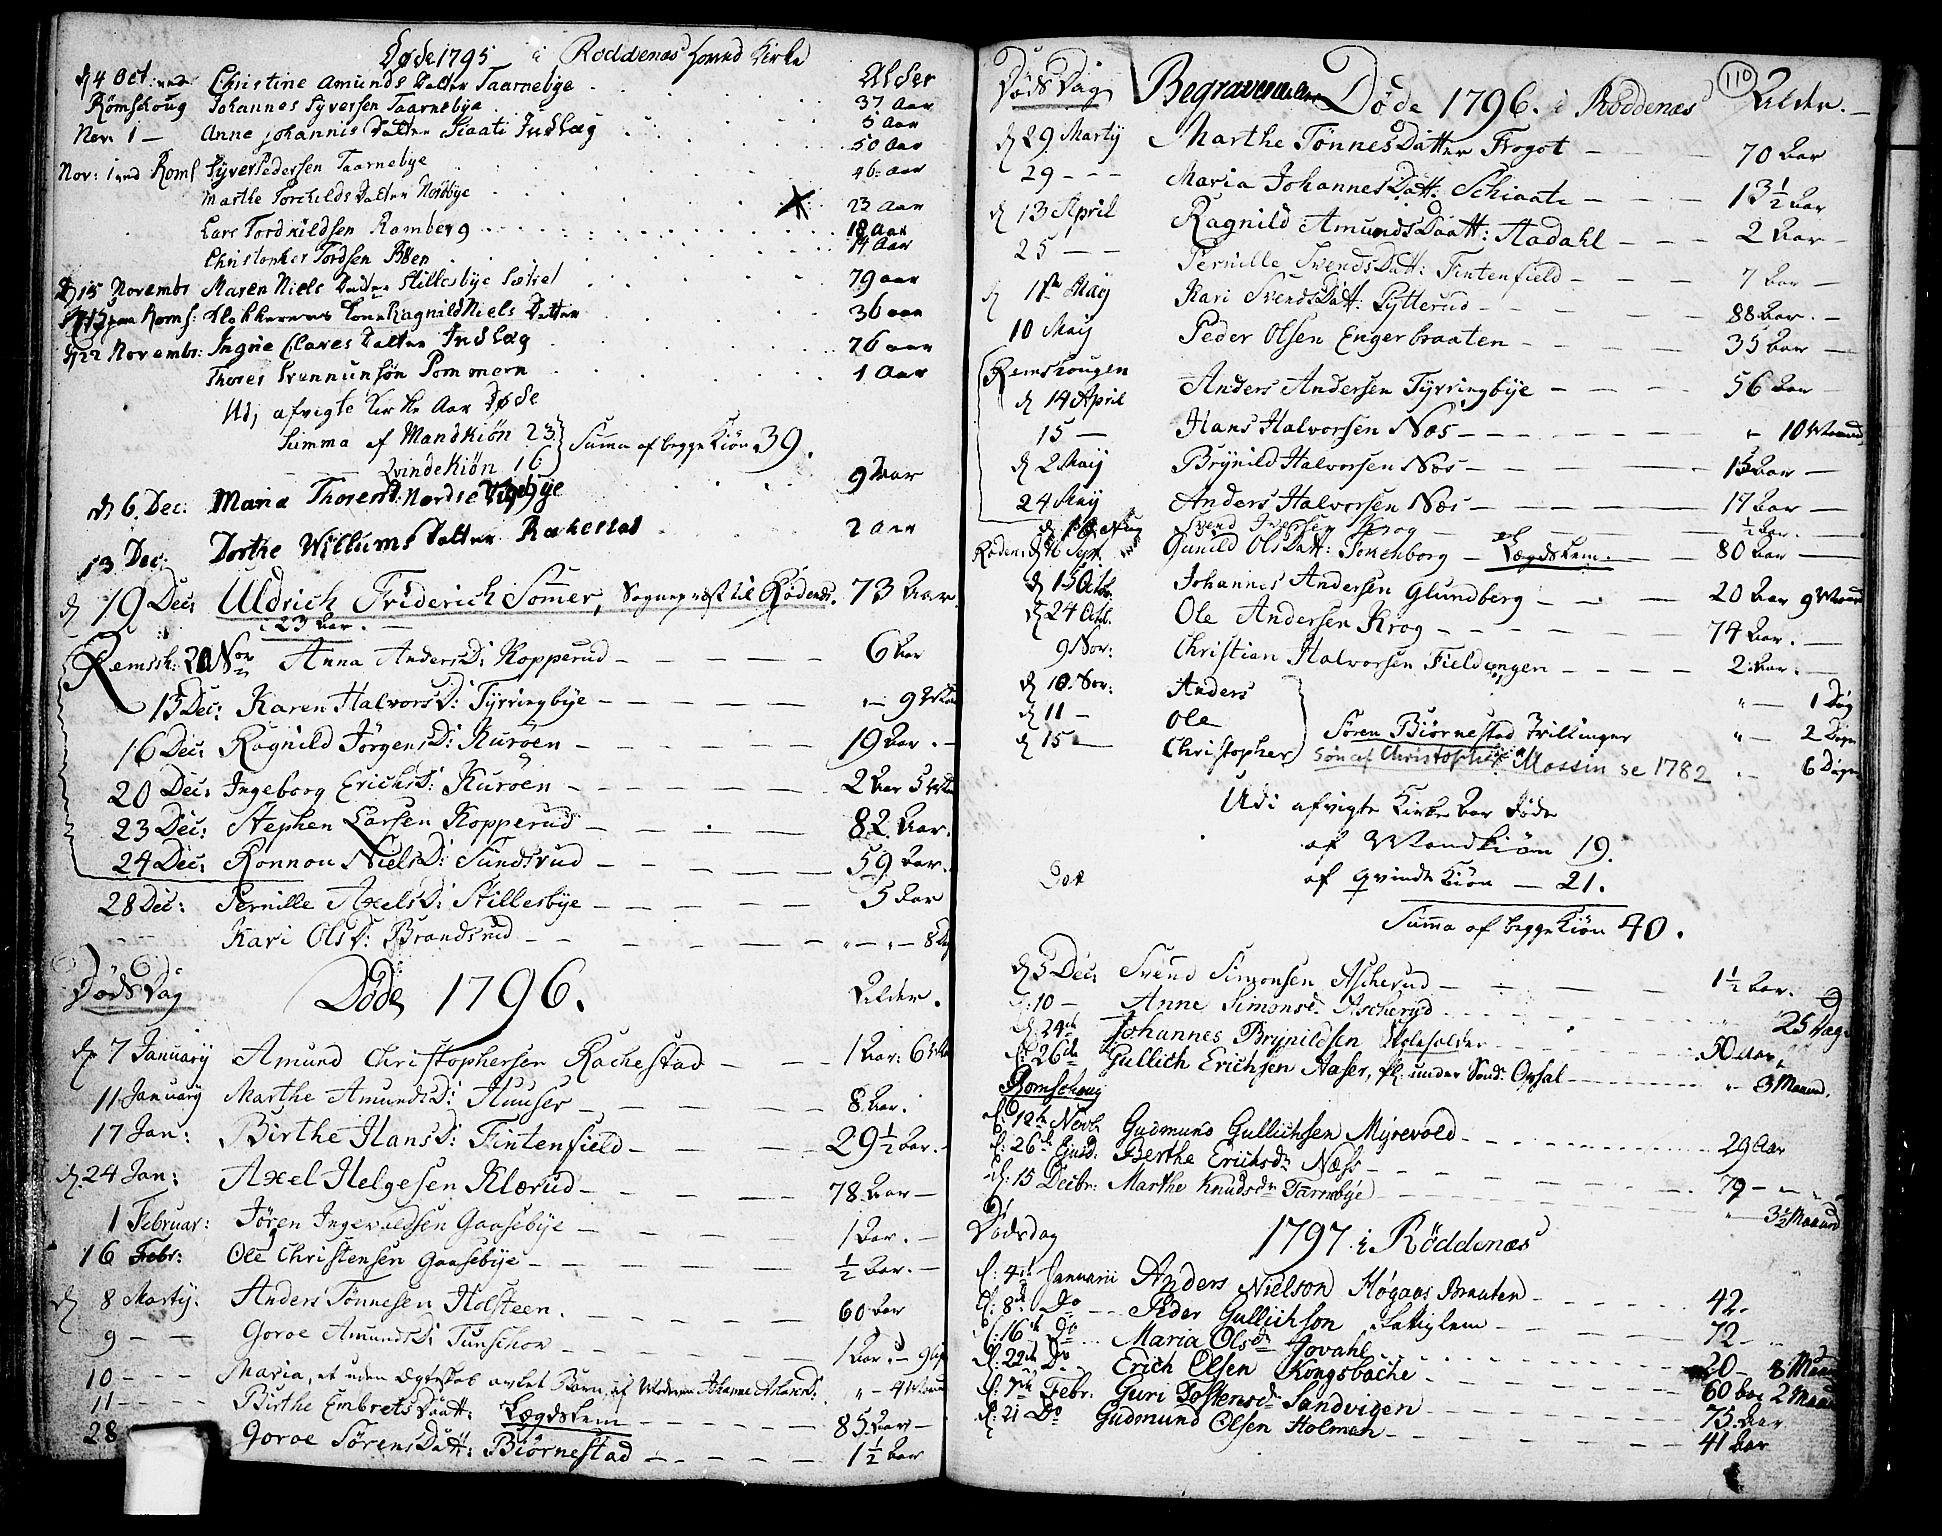 Døde 1795 i Röddenæs Hoved Kirke
d 4 Oct ved Christine Amunds Datter Taarnebye Alder
Römskoug Johannes Syversen Taarnebye 37 Aar
Nov: 1 — Anne Johannis Datter Slaati Indlag 5 Aar
50 Aar
Nov: 1 ved Roms Syver Pedersen Taarnebye 46 Aar
Marthe Torchilds Datter Nordbye 23 Aar
Lars Tordkildsen Romberg 18 Aar
Christopher Tordsen Böen 14 Aar
d 15 Novembr Maren Niels Datter Stillesbye Sætret 79 aar
Roms: Klokkerens Kone Ragnild Niels Datter 36 aar
d 22 Novembr: Ingrie Clares Datter Indlag 76 aar
Thores Svennunsön Pommern 1 Aar
Udj afvigte Kirke Aar Døde
Summa af Mandkiön 23 } Summa af begge Kiön 39.
— — Qvindekiön 16
d 6. Dec: Maria Thoresd: Nordre 9 Aar
13 Dec: Dorthe Willums Datter Rakestad 2 Aar
d 19 Dec: Uldrich Friderich Somer, Sogneprest til Rödenes. 73 Aar.
i 23 Aar.
Remssk: 20 Nov Anna AndersD: Kopperud — 6 Aar
13 Dec: Karen HalvorsD: Tyrringbye — „— 9
16 Dec: Ragnild JörgensD: Kuröen — 19 Aar. —
20 Dec: Ingeborg ErichsD: Kuroen — 2 Aar 5
23 Dec: Stephen Larsen Kopperud — 82 Aar.
24 Dec: Ronnou NielsD: Sundsrud — 59 Aar. —
28 Dec: Pernille AxelsD: Stillesbye — 5 Aar
Kari OlsD: Brandsrud — „ — „ — 8
DödsDag Döde 1796. Alder.
d 7 January Amund Christophersen Rachestad — 1 Aar: 6
11 January Marthe AmundsD: Huuser — 8 Aar.
17 Jan: Birthe HansD: Fintenfield — 29 1/2 Aar. —
d. 24 Jan: Axel Helgesen Klærud — 78. Aar —
1 Februar: Jören Ingevoldsen Gaasebye — 1 Aar. —
16 Febr: Ole Christensen Gaasebye — 1/2 Aar. —
d 8 Martij. Anders Tönnesen Holsteen. 60 Aar
9 — — Goroe AmundsD: Tunschow 1 Aar. — 9
10 — — Maria, et uden Ægteskab avlet Barn, af Moderen „ — 4
11 — — Birthe EmbretsDaatt: Lægdslem — 85. Aar —
28 Goroe SörensDatt: Biörnestad — 1 1/2 Aar
110
DödsDag Begravne eller Döde 1796. i Röddenæs Alder. —
d 29 Martij Marthe TönnesDatter Trogot — 70 Aar
29 — — Maria JohannesDatt: Schiaate — 13 1/2 Aar
d 13 April Ragnild AmundsDaatt: Aadahl — 2 Aar —
25 — — Pernille SvendsDatt: Fintenfield — 7 Aar —
d 1ste Maij Kari SvendsDatt: Pytterud — 88 Aar. —
10 Maij Peder Olsen Engerbraaten — 35 Aar —
Remskougen
d 14 April Anders Andersen Tyrringbye — 56 Aar
15 — Hans Halvorsen Næs — „ 10 Maaned
d 2 Maij Brynild Halvorsen Næs — 13 Aar —
24 Maij Anders Halvorsen Næs — 17 Aar —
Svend Iversen Krog — 1/2 Aar. —
Röden: d 16 Sept. Gunild OlsDatt: Tomenborg — et Lægdslem. 80 Aar —
d 15 Octbr. Johannes Andersen Glundberg — 20 Aar 9 Maaned
d 24 Octb. Ole Andersen Krog — 74 Aar. —
9 Nov: Christian Halvorsen Fieldengen — 2. Aar. —
d 10. Nov: Anders „ — 1 Dög
d 11 — Ole } Sören Biörnestad Trillinger „ — 2 Döge
d 15 — Christopher Søn af Christopher Mossin se 1782 6 Döge
Udi afvigte Kirke Aar døde
af Mandkiön 19.
af Qvindekiön — 21.
Summa af begge Kiön 40.
d 5 Dec: Svend Simonsen Ascherud — 1 1/2 Aar. —
d: 10 — Anne Simonsd. Ascherud 25 Dage
d. 24de Johannes Brynildsen Skoleholder 50 Aar
d: 26de Gullich Erichsen Aaser, pl: under Sönd. Opsal — „ 3 Maaned.
Romschoug
d: 12te Novb. Gudmund Gullichsen Myrevold — 29 Aar
d: 26de Ejusd. Berthe Erichsdr Næss — 79 —
d: 15 Decbr: Marthe Knudsdr Tarnebye „ 3 1/2 Maaned
Dödsdag 1797. i Röddenæs
d: 4de Januarii Anders Nielson Høgaas Braaten — 42.
d: 8de Do — Peder Gullichson Lægslem — 72 —
d: 16de Do — Maria Olsdr Jovahl 20 — 8 Maan
d: 22de Do Erich Olsen Kongsbache — 60 Aar 2 Maan
d: 7de Febr: Guri Tostensdr Sandvigen — 75. Aar
d: 21 Do Gudmund Olsen Holmen — 41 Aar